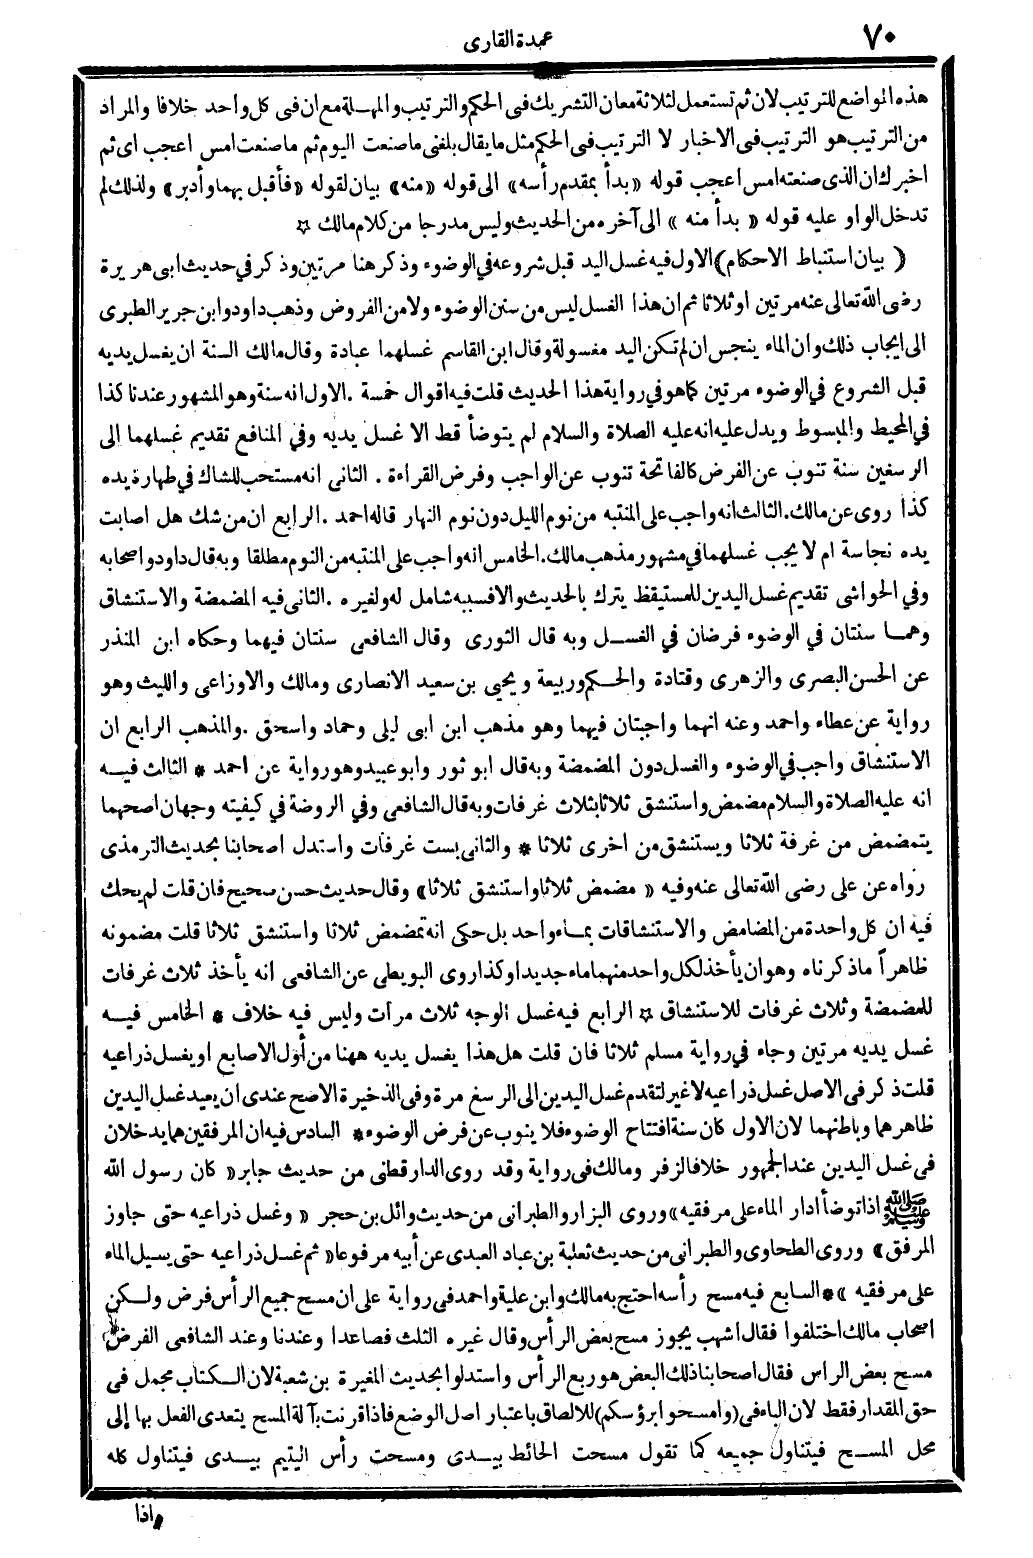 ٧٠
عمدة القارى
هذه المواضع للترتيب لان ثم تستعمل لثلاثة معان التشريك فى الحكم والترتيب والمهلة مع ان فى كل واحد خلافا والمراد
من الترتيب هو الترتيب فى الاخبار لا الترتيب فى الحكم مثل ما يقال بلغنى ما صنعت اليوم ثم ما صنعت امس اعجب اى ثم
اخبرك ان الذى صنعته امس اعجب قوله «بدأ بمقدم رأسه» الى قوله «منه» بيان لقوله «فأقبل بهما وأدبر» ولذلك لم
تدخل الواو عليه قوله «بدأ منه» الى آخره من الحديث وليس مدرجا من كلام مالك ☆
(بيان استنباط الاحكام) الاول فيه غسل اليد قبل شروعه في الوضوء وذكر هنا مرتين وذكر في حديث ابى هريرة
رضى الله تعالى عنه مرتين او ثلاثا ثم ان هذا الغسل ليس من سنن الوضوء ولا من الفروض وذهب داود وابن جرير الطبرى
الى ايجاب ذلك وان الماء ينجس ان لم تكن اليد مغسولة وقال ابن القاسم غسلهما عبادة وقال مالك السنة ان يغسل يديه
قبل الشروع في الوضوء مرتين كما هو في رواية هذا الحديث قلت فيه اقوال خمسة . الاول انه سنة وهو المشهور عندنا كذا
في المحيط والمبسوط ويدل عليه انه عليه الصلاة والسلام لم يتوضأ قط الا غسل يديه وفي المنافع تقديم غسلهما الى
الرسغين سنة تنوب عن الفرض كالفاتحة تنوب عن الواجب وفرض القراءة . الثانى انه مستحب للشاك في طهارة يده
كذا روى عن مالك . الثالث انه واجب على المنتبه من نوم الليل دون نوم النهار قاله احمد . الرابع ان من شك هل اصابت
يده نجاسة ام لا يجب غسلهما في مشهور مذهب مالك . الخامس انه واجب على المنتبه من النوم مطلقا وبه قال داود واصحابه
وفي الحواشى تقديم غسل اليدين للمستيقظ يترك بالحديث والا فسببه شامل له ولغيره . الثانى فيه المضمضة والاستنشاق
وهما سنتان في الوضوء فرضان في الغسل وبه قال الثورى وقال الشافعى سنتان فيهما وحكاه ابن المنذر
عن الحسن البصرى والزهرى وقتادة والحكم وربيعة ويحيى بن سعيد الانصارى ومالك والاوزاعى والليث وهو
رواية عن عطاء واحمد وعنه انهما واجبتان فيهما وهو مذهب ابن ابى ليلى وحماد واسحق . والمذهب الرابع ان
الاستنشاق واجب في الوضوء والغسل دون المضمضة وبه قال ابو ثور وابو عبيد وهو رواية عن احمد * الثالث فيه
انه عليه الصلاة والسلام مضمض واستنشق ثلاثا بثلاث غرفات وبه قال الشافعى وفي الروضة في كيفيته وجهان اصحهما
يتمضمض من غرفة ثلاثا ويستنشق من اخرى ثلاثا * والثانى بست غرفات واستدل اصحابنا بحديث الترمذى
رواه عن على رضى الله تعالى عنه وفيه «مضمض ثلاثا واستنشق ثلاثا» وقال حديث حسن صحيح فان قلت لم يحك
فيه ان كل واحدة من المضامض والاستنشاقات بماء واحد بل حكى انه تمضمض ثلاثا واستنشق ثلاثا قلت مضمونه
ظاهرا ما ذكرناه وهو ان يأخذ لكل واحد منهما ماء جديدا وكذا روى البويطى عن الشافعى انه يأخذ ثلاث غرفات
للمضمضة وثلاث غرفات للاستنشاق ☆ الرابع فيه غسل الوجه ثلاث مرات وليس فيه خلاف * الخامس فيه
غسل يديه مرتين وجاء في رواية مسلم ثلاثا فان قلت هل هذا يغسل يديه ههنا من أول الاصابع او يغسل ذراعيه
قلت ذكر فى الاصل غسل ذراعيه لا غير لتقدم غسل اليدين الى الرسغ مرة وفى الذخيرة الاصح عندى ان يعيد غسل اليدين
ظاهرهما وباطنهما لان الاول كان سنة افتتاح الوضوء فلا ينوب عن فرض الوضوء * السادس فيه ان المرفقين هما يدخلان
فى غسل اليدين عند الجمهور خلافا لزفر ومالك فى رواية وقد روى الدارقطنى من حديث جابر «كان رسول الله
ﷺ اذا توضأ أدار الماء على مرفقيه» وروى البزار والطبرانى من حديث وائل بن حجر «وغسل ذراعيه حتى جاوز
المرفق» وروى الطحاوى والطبرانى من حديث ثعلبة بن عباد العبدى عن أبيه مرفوعا «ثم غسل ذراعيه حتى يسيل الماء
على مرفقيه» * السابع فيه مسح رأسه احتج به مالك وابن علية واحمد فى رواية على ان مسح جميع الرأس فرض ولكن
اصحاب مالك اختلفوا فقال اشهب يجوز مسح بعض الرأس وقال غيره الثلث فصاعدا وعندنا وعند الشافعى الفرض
مسح بعض الراس فقال اصحابنا ذلك البعض هو ربع الرأس واستدلوا بحديث المغيرة بن شعبة لان الكتاب مجمل فى
حق المقدار فقط لان الباء فى (وامسحوا برؤسكم) للالصاق باعتبار اصل الوضع فاذا قرنت بآلة المسح يتعدى الفعل بها إلى
محل المسح فيتناول جميعه كما تقول مسحت الحائط بيدى ومسحت رأس اليتيم بيدى فيتناول كله
واذا